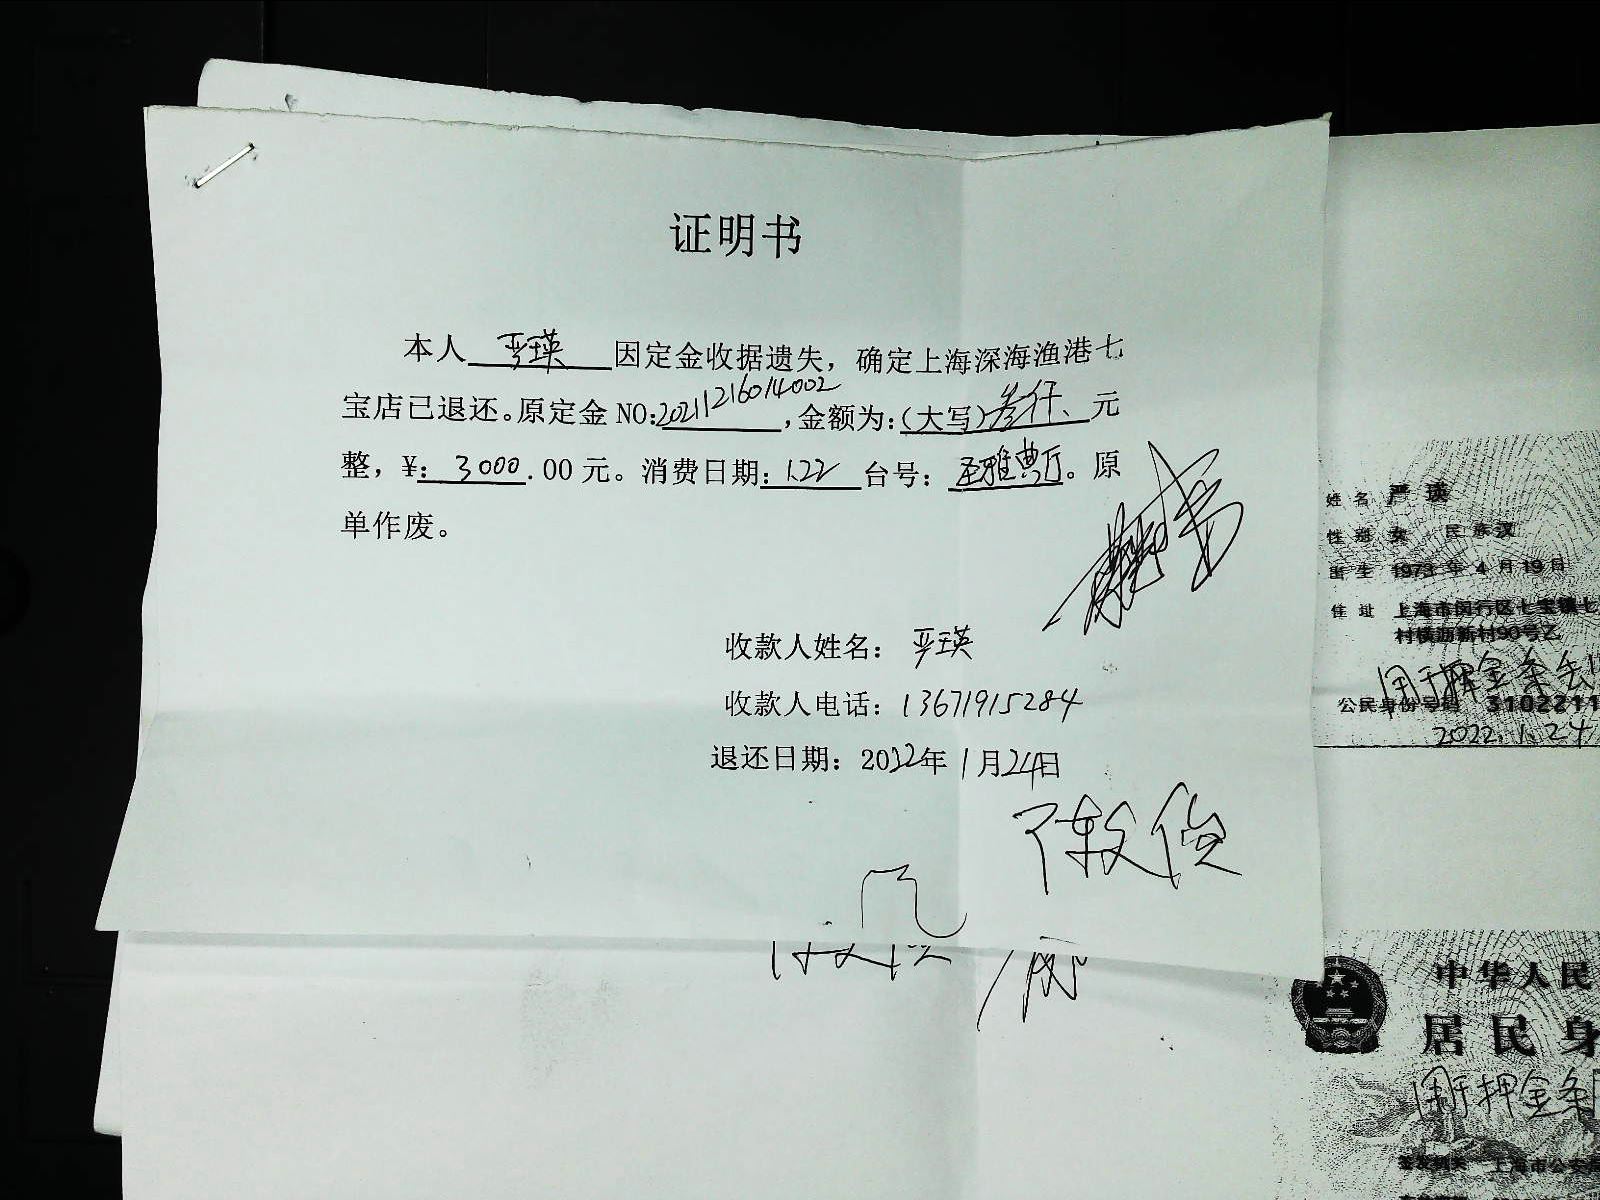 证明书
本人 严瑛 因定金收据遗失，确定上海深海渔港七
宝店已退还。原定金 NO:20211216014002，金额为:(大写)叁仟、元
整，¥: 3000.00 元。消费日期: 1.22 台号: 圣雅典厅。原
单作废。
收款人姓名: 严瑛
收款人电话: 13671915284
退还日期: 2022年1月24日
陈文俊
姓名 严瑛
性别 女 民族汉
出生 1973年4月19日
住址 上海市闵行区七宝镇七
村横沥新村90号乙
用于押金条丢
公民身份号码 3102211
2022.1.24
中华人民
居民身
用于押金条
签发机关 上海市公安局